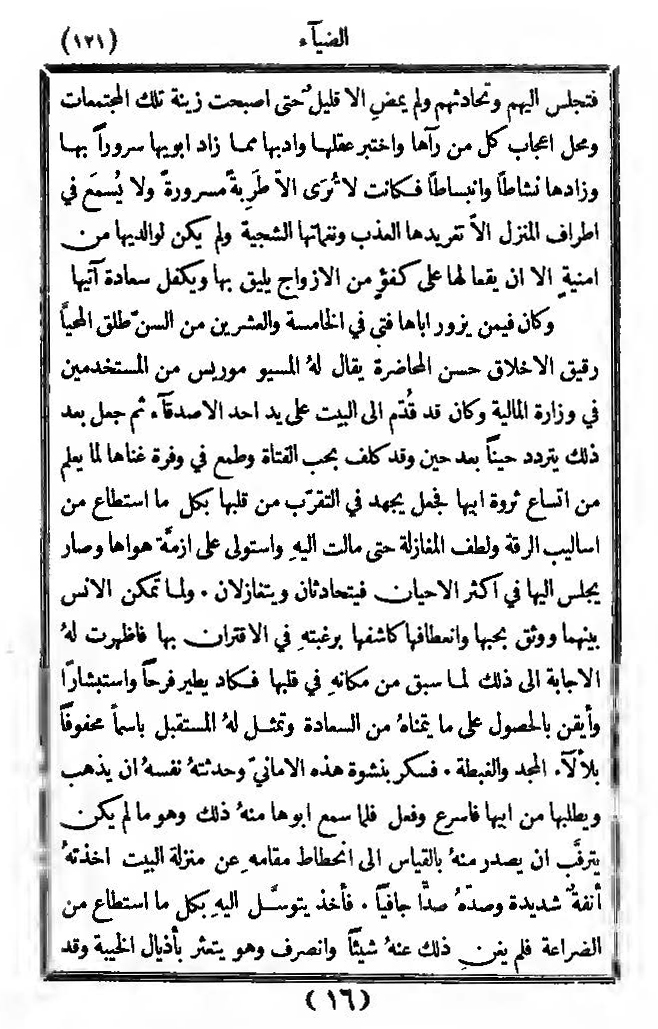 الضيآء (١٢١)
فتجلس اليهم وتحادثهم ولم يمضِ الا قليلٌ حتى اصبحت زينة تلك المجتمعات
ومحل اعجاب كل من رآها واختبر عقلها وادبها مما زاد ابويها سروراً بها
وزادها نشاطاً وانبساطاً فكانت لا تُرَى الاَّ طَرِبةً مسرورةً ولا يُسمَع في
اطراف المنزل الاَّ تغريدها العذب ونغماتها الشجية ولم يكن لوالديها من
امنيةٍ الا ان يقعا لها على كفؤٍ من الازواج يليق بها ويكفل سعادة آتيها
وكان فيمن يزور اباها فتى في الخامسة والعشرين من السنّ طلق المحياَّ
رقيق الاخلاق حسن المحاضرة يقال لهُ المسيو موريس من المستخدمين
في وزارة المالية وكان قد قُدّم الى البيت على يد احد الاصدقآء ثم جعل بعد
ذلك يتردد حيناً بعد حين وقد كلف بحب الفتاة وطمع في وفرة غناها لما يعلم
من اتساع ثروة ابيها فجعل يجهد في التقرّب من قلبها بكل ما استطاع من
اساليب الرقة ولطف المغازلة حتى مالت اليهِ واستولى على ازمَّة هواها وصار
يجلس اليها في اكثر الاحيان فيتحادثان ويتغازلان . ولما تمكن الانس
بينهما ووثق بحبها وانعطافها كاشفها برغبتهِ في الاقتران بها فاظهرت لهُ
الاجابة الى ذلك لما سبق من مكانهِ في قلبها فكاد يطير فرحاً واستبشارًا
وأيقن بالحصول على ما يتمناهُ من السعادة وتمثل لهُ المستقبل باسماً محفوفاً
بلألآء المجد والغبطة . فسكر بنشوة هذه الامانيّ وحدثتهُ نفسهُ ان يذهب
ويطلبها من ابيها فاسرع وفعل فلما سمع ابوها منهُ ذلك وهو ما لم يكن
يترقَّب ان يصدر منهُ بالقياس الى انحطاط مقامهِ عن منزلة البيت اخذتهُ
أنفةٌ شديدة وصدّهُ صدًّا جافياً . فأخذ يتوسَّل اليهِ بكل ما استطاع من
الضراعة فلم يغنِ ذلك عنهُ شيئاً وانصرف وهو يتعثر بأذيال الخيبة وقد
(١٦)